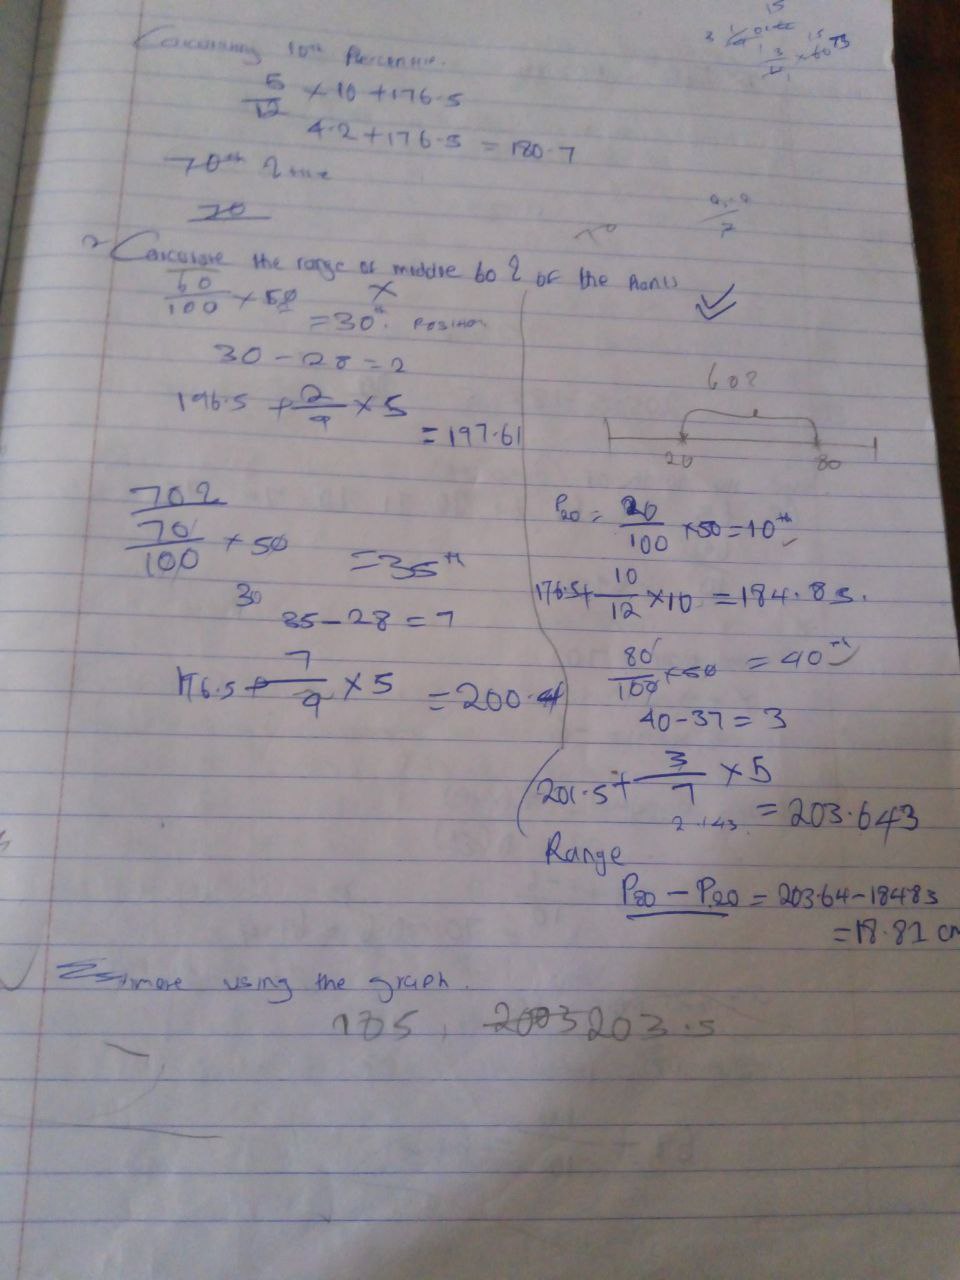 Calculating 10th Percentile.
5/12 × 10 + 176.5
4.2 + 176.5 = 180.7
70th %ile
70
2 Calculate the range of middle 60 % of the plants
60/100 × 50 ×
= 30th Position
30 - 28 = 2
196.5 + 2/9 × 5
= 197.61
70%
70/100 × 50 = 35th
30
35 - 28 = 7
196.5 + 7/9 × 5 = 200.4
60%
20 80
P20 = 20/100 × 50 = 10th
176.5 + 10/12 × 10 = 184.83.
80/100 × 50 = 40th
40 - 37 = 3
201.5 + 3/7 × 5
2.143 = 203.643
Range
P80 - P20 = 203.64 - 184.83
= 18.81 cm
Estimate using the graph.
185, 2003 203.5